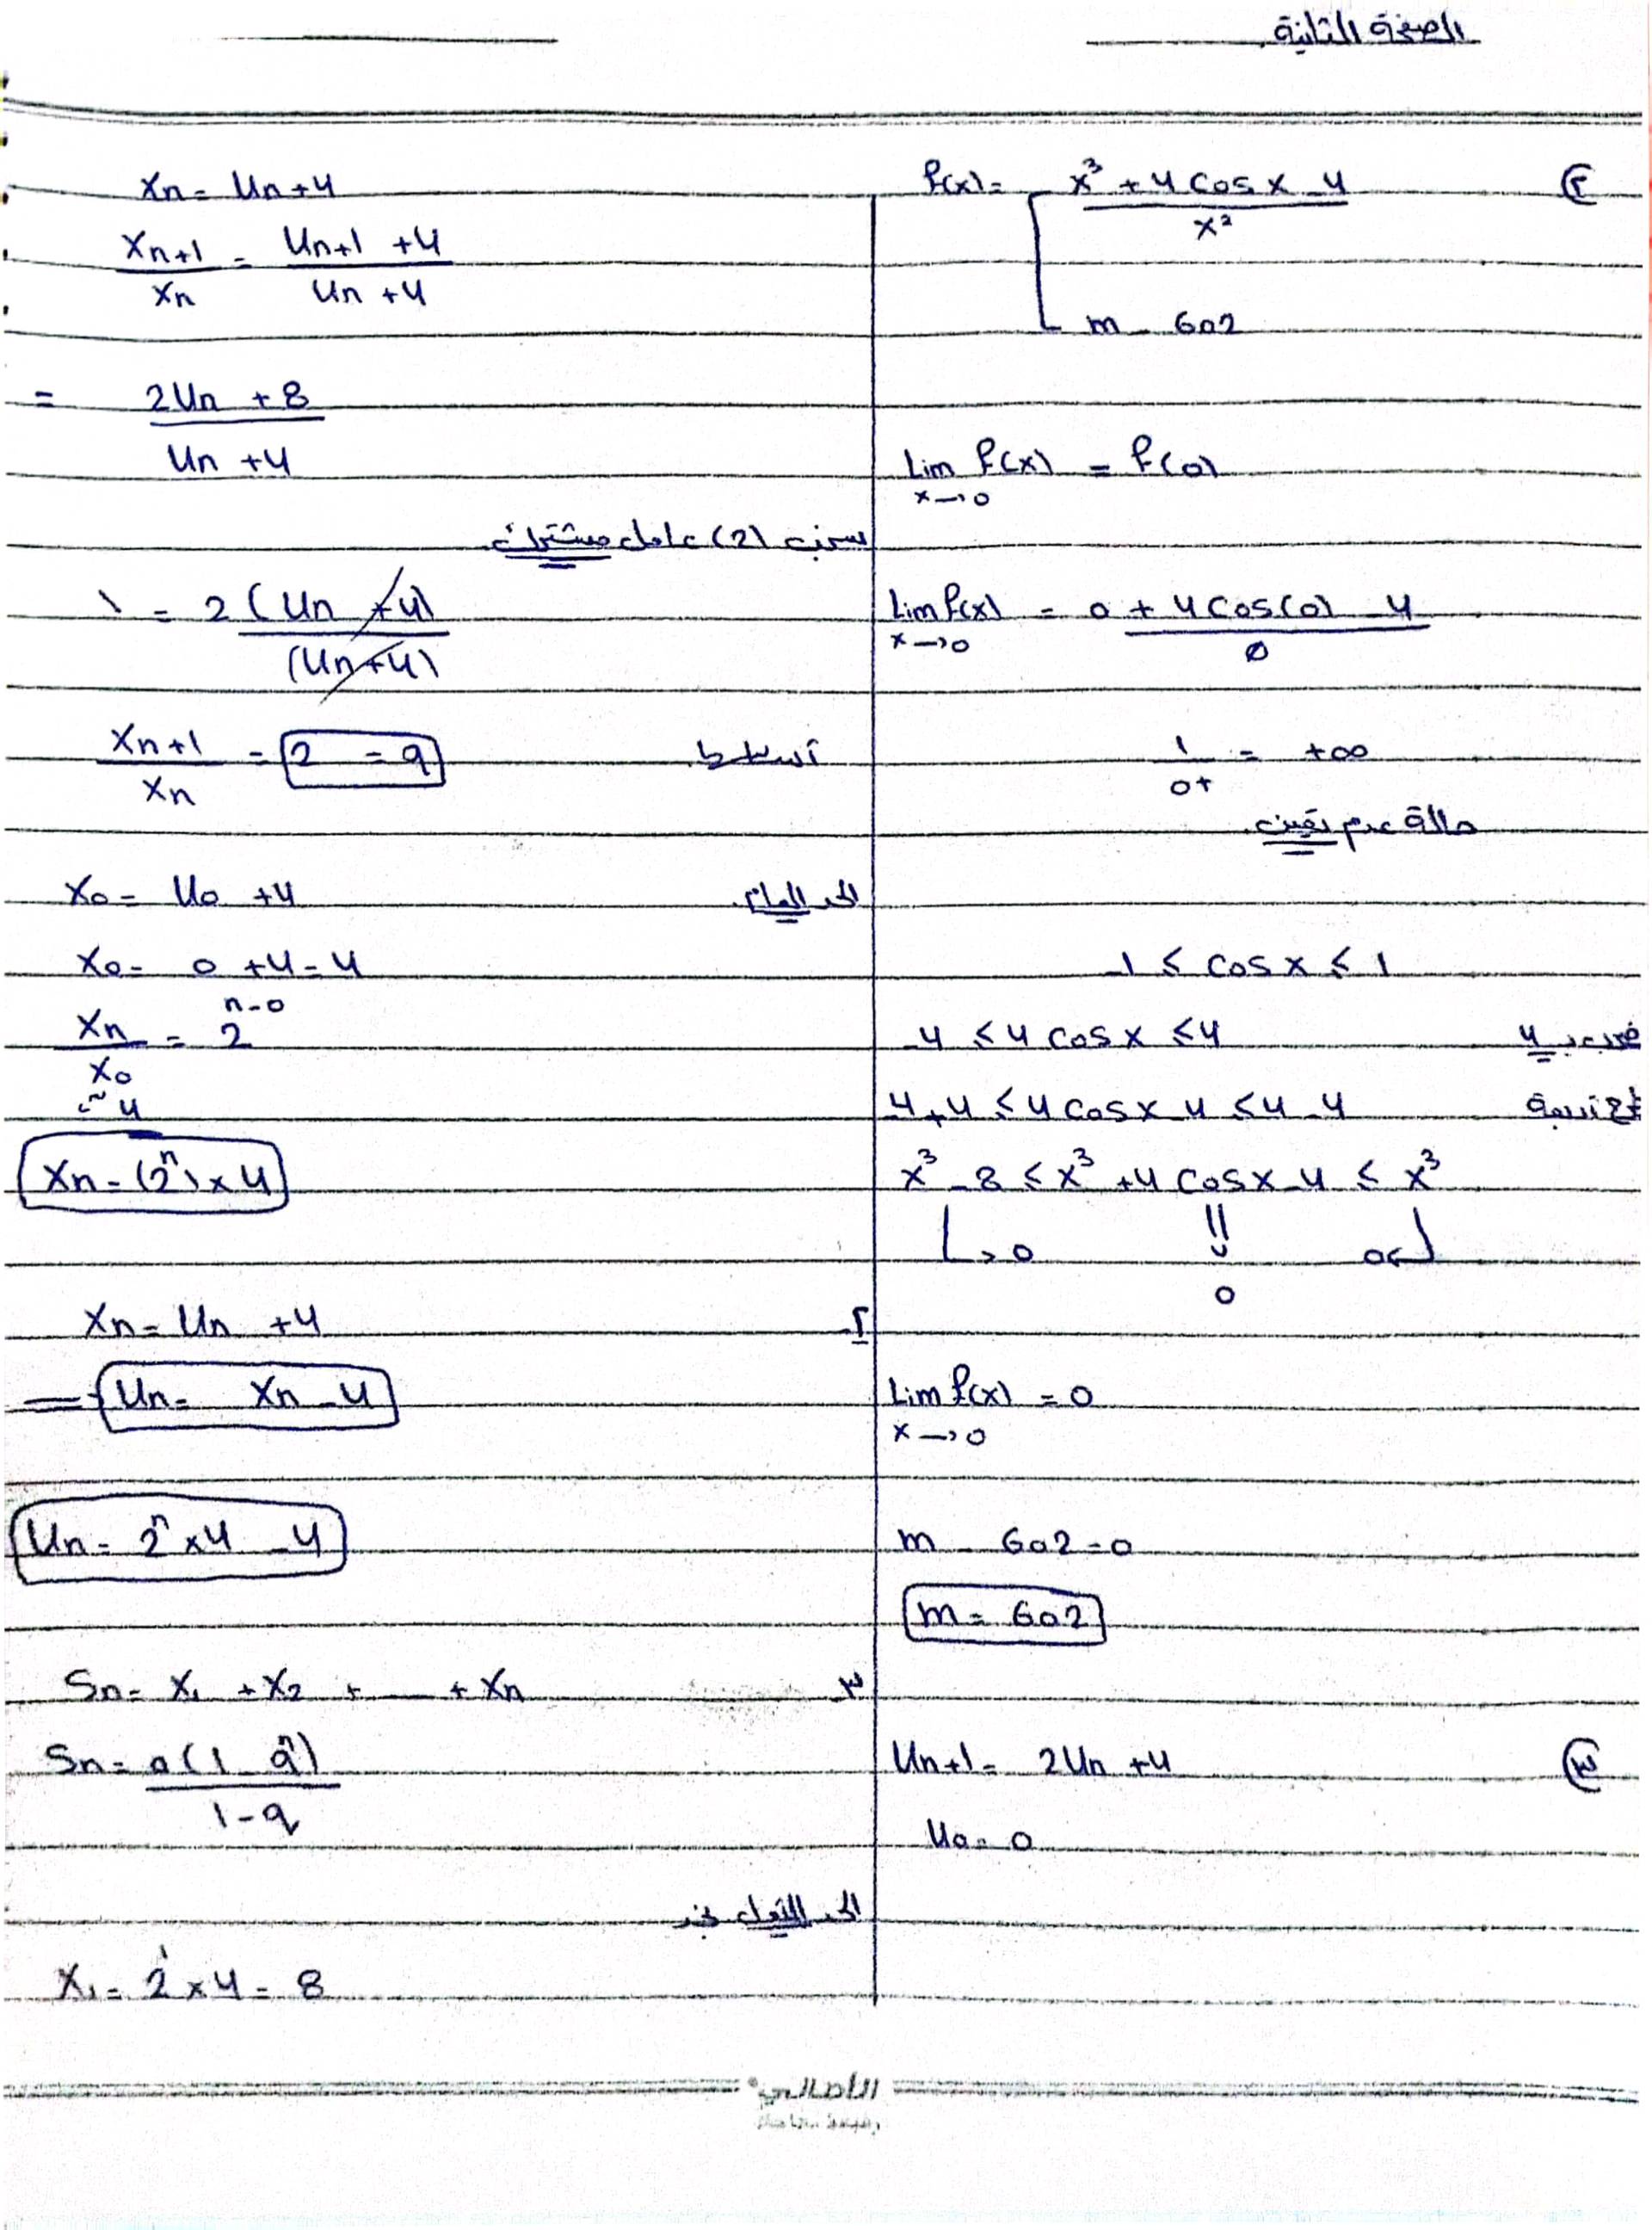 الصفحة الثانية
٢
f(x) = x³ + 4 cos x - 4
x²
m - 602
Lim f(x) = f(0)
x→0
Lim f(x) = 0 + 4 cos(0) - 4
x→0
0
1/0+ = +∞
حالة عدم تعيين
-1 ≤ cos x ≤ 1
-4 ≤ 4 cos x ≤ 4
نضرب بـ 4
-4+4 ≤ 4 cos x - 4 ≤ 4 - 4
x³ - 8 ≤ x³ + 4 cos x - 4 ≤ x³
→ 0
0
0 ←
Lim f(x) = 0
x→0
m - 602 = 0
m = 602
٣
Un+1 = 2Un + 4
U0 = 0
Xn = Un + 4
Xn+1 / Xn = Un+1 + 4 / Un + 4
= 2Un + 8
Un + 4
سحب (2) عامل مشترك
١ = 2(Un + 4)
(Un + 4)
Xn+1 / Xn = 2 = q
أساسها
الحد العام
X0 = U0 + 4
X0 = 0 + 4 = 4
Xn / X0 = 2ⁿ⁻⁰
4
Xn = (2ⁿ) × 4
٢
Xn = Un + 4
= Un = Xn - 4
Un = 2ⁿ × 4 - 4
٣
Sn = X1 + X2 + ... + Xn
Sn = a(1 - qⁿ)
1 - q
الحد الأول
X1 = 2¹ × 4 = 8
الأصالي